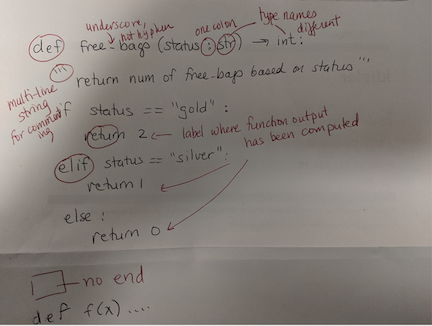 underscore,
not hyphen
one colon
type names
different
def free-bags (status : str) → int:
''' return num of free-bags based on status '''
multi-line
string
for comment
ing
if status == "gold" :
return 2 ← label where function output
has been computed
elif status == "silver" :
return 1
else :
return 0
no end
def f(x) ....